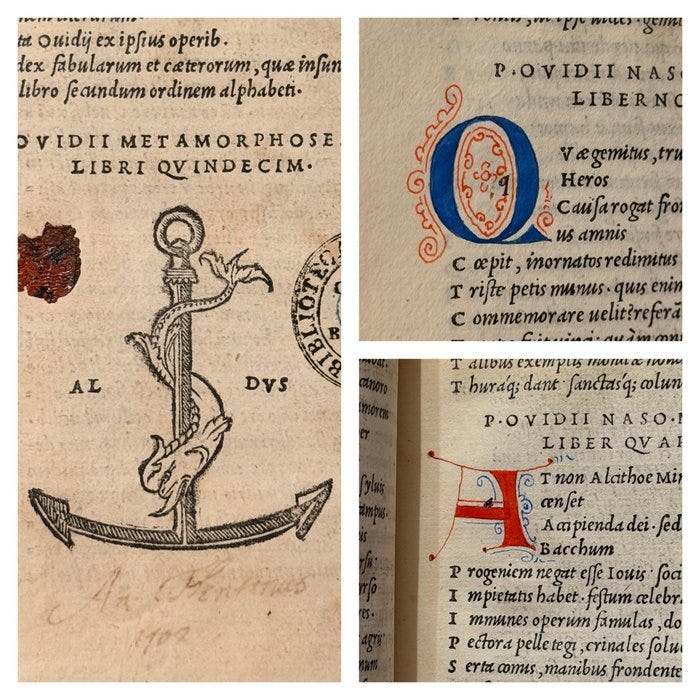 ta Ouidij ex ipsius operib.
dex fabularum et cæterorum, quæ insun
libro secundum ordinem alphabeti.
OVIDII METAMORPHOSE
LIBRI QVINDECIM.
AL DVS
BIBLIOTECA
P. OVIDII NASO
LIBER NO
Q
q
Væ gemitus, tru
Heros
Causa rogat fron
us amnis
Cœpit, inornatos redimitus
Triste petis munus. quis enim
Commemorare uelit? referã
Talibus exemplis monitæ
Thuraq; dant sanctasq; colun
P. OVIDII NASO.
LIBER QVAR
A
T non Alcithoe Min
censet
Accipienda dei. sed
Bacchum
Progeniem negat esse Iouis. soci
Impietatis habet. festum celebr
Immunes operum famulas, do
Pectora pelle tegi, crinales solu
Serta comis, manibus frondente